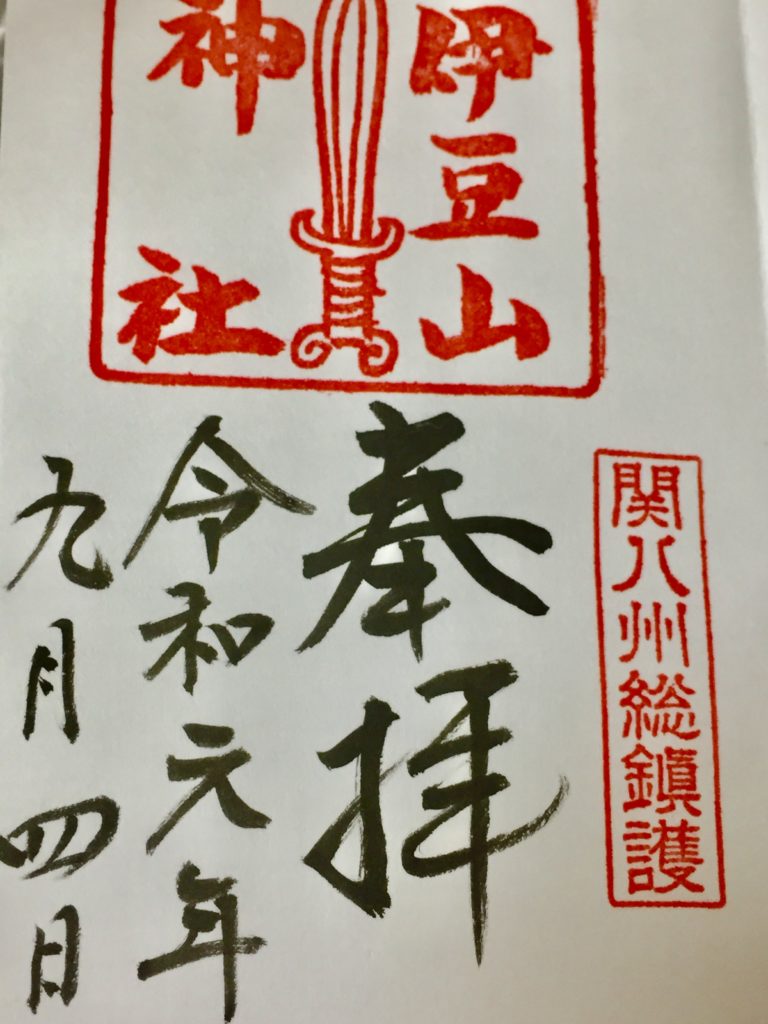 伊豆山
神社
関八州総鎮護
奉拝
令和元年
九月四日